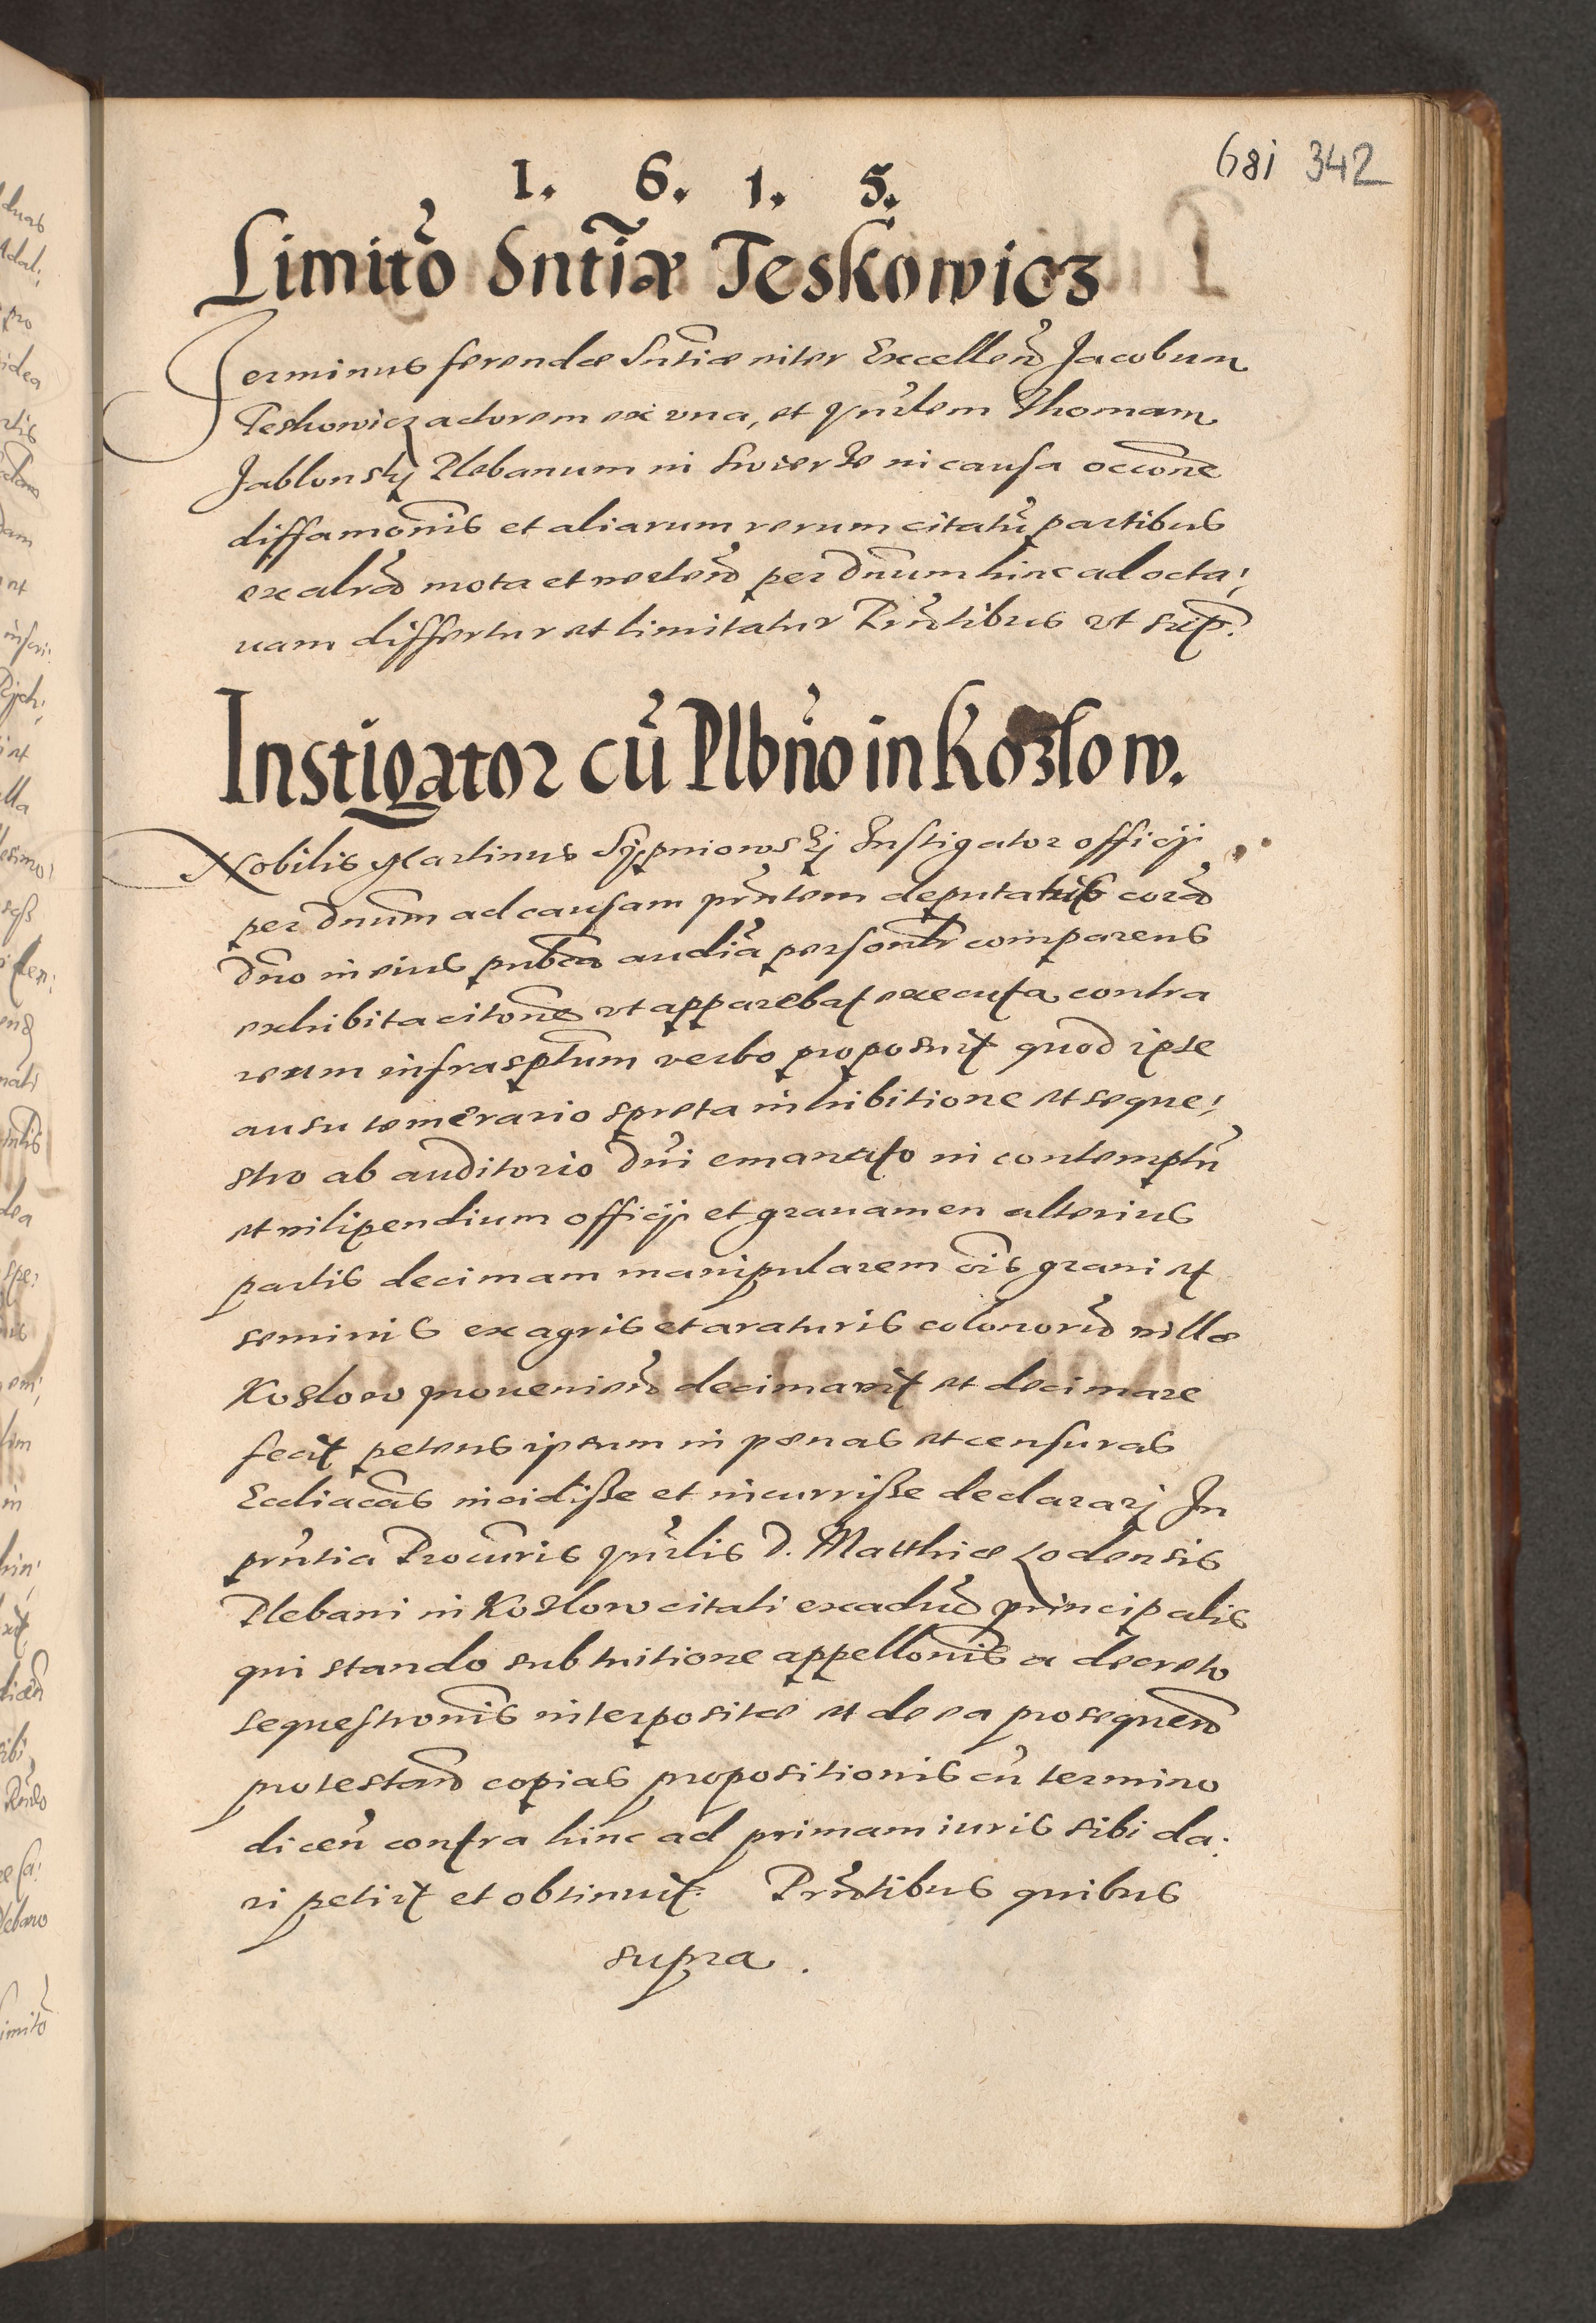 681 342
1. 6. 1. 5.
Limitõ Sntiæ Teskowicz
Terminus ferendæ Sntiæ inter Excellen Jacobum
Teskowicz actorem ex una, et Vnrlem Thomam
Jablonsky Plebanum in Swierze in causa occone
diffamonis et aliarum rerum citatũ partibus
ex altrã mota et verteñ per Dnum hinc ad octa:
uam differtur et limitatur Pñtibus vt sup.
Instigator cũ Plbño in Kozlow.
Nobilis Martinus Sÿpniowskÿ Instigator officÿ
per Dnum ad causam pñtem deputatus corã
Dno in eius publca audiã personlr comparens
exhibita citone vt apparebat executa contra
reum infrasptum verbo proposuit quod ipse
ausu temerario spreta inhibitione et seque:
stro ab auditorio Dñi emanato in contemptũ
et vilipendium officÿ et grauamen alterius
partis decimam manipularem ois grani et
seminis ex agris et araturis colonorũ villæ
Kozlow prouenien decimavit et decimare
fecit petens ipsum in pœnas et censuras
Eccliacas incidisse et incurrisse declararj In
pñtia Procuris Vnrlis D. Matthiæ Lodensis
Plebani in Kozlow citati ex aduũ principalis
qui stando sub tuitione appellonis a decreto
sequestronis interpositæ et de ea prosequeñ
protestand copias propositionis cũ termino
diceñ contra hinc ad primam iuris sibi da:
ri petijt et obtinuit. Pñtibus quibus
supra.